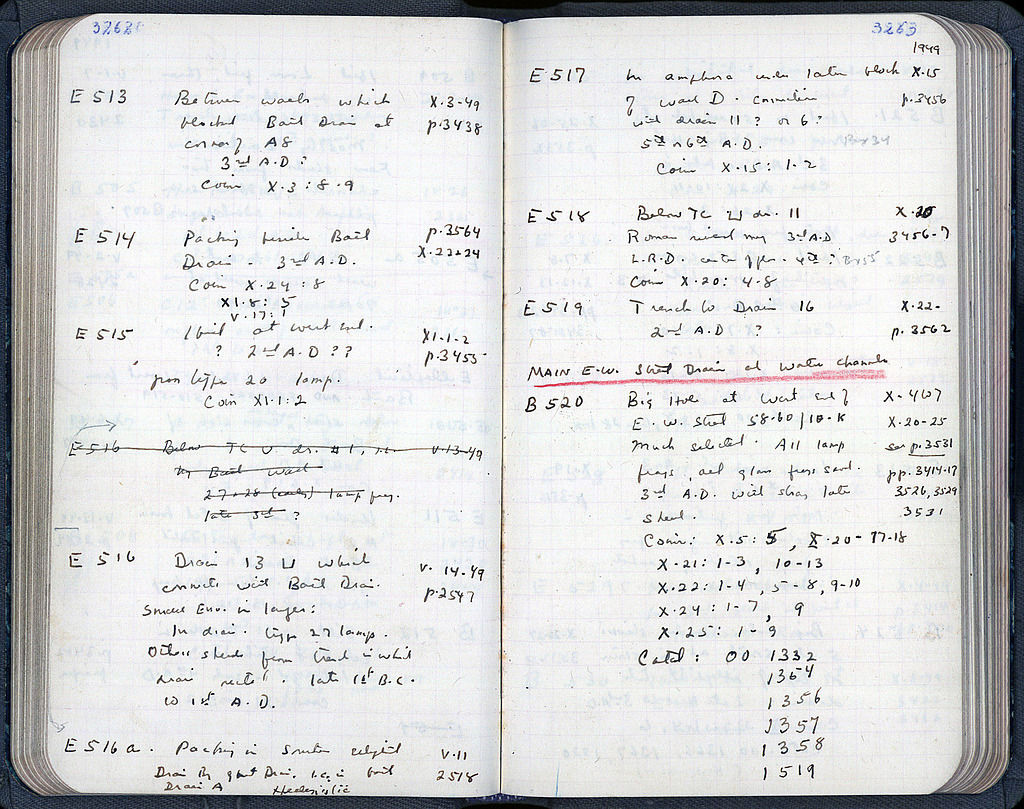 3262
E 513 Between walls which X-3-49
blocked Bath Drain at p.3438
corner of A8
3rd A.D?
Coin X.3:8-9
E 514 Packing beside Bath p.3564
Drain - 3rd A.D. X.22+24
Coin X.24:8
XI.8:5
V.17:1
E 515 at west end. XI-1-2
? 2nd A.D?? p.3455
from type 20 lamp.
Coin XI.1:2
E 516 Below TC U dr. #1, V-13-49
Bath wall
27+28 (early) lamp frg.
late 3rd ?
E 516 Drain 13 U which V. 14-49
connects with Bath Drain. p.2547
Small Env. in larger:
In drain. type 27 lamp.
Other sherds from trench in which
drain late 1st B.C.
to 1st A.D.
E 516a. Packing in smaller V-11
Drain 2518
Drain A Hellenistic
3263
1949
E 517 In amphora under later block X-15
of wall D. connection p.3456
with drain 11? or 6?
5th or 6th A.D.
Coin X.15:1-2
E 518 Below TC U dr. 11 X-20
Roman 3rd A.D 3456-7
L.R.D. 4th?
Coin X.20:4-8
E 519 Trench W. Drain 16 X.22-
2nd A.D? p.3562
MAIN E.W. Street Drain at Water channels
B 520 Big Hole at West end of X-4+07
E.W. Street 58-60/10-K X-20-25
Much selected. All lamp see p.3531
frags, and glass frags saved. pp.3414-17
3rd A.D. with stray late 3526, 3529
sherd. 3531
Coin: X.5:5, X-20-17-18
X-21:1-3, 10-13
X.22:1-4, 5-8, 9-10
X.24:1-7, 9
X.25:1-9
Catal: OO 1332
1354
1356
1357
1358
1519